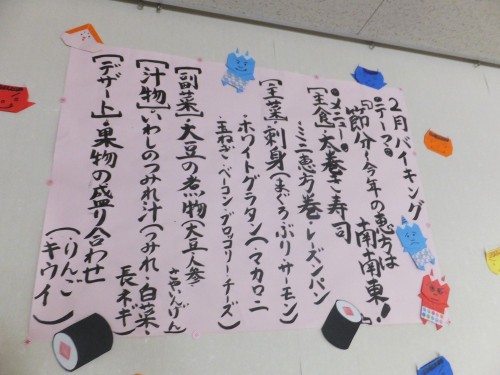 2月バイキング
◎テーマ◎
「節分~今年の恵方は
南南東!」
◎メニュー◎
[主食]太巻き寿司
・ミニ恵方巻・レーズンパン
[主菜]・刺身(まぐろ・ぶり・サーモン)
・ホワイトグラタン(マカロニ
・玉ねぎ・ベーコン・ブロッコリー・チーズ)
[副菜]・大豆の煮物(大豆・人参・
さやいんげん)
[汁物]いわしのつみれ汁(つみれ・白菜・
長ネギ)
[デザート]・果物の盛り合わせ
(・りんご
・キウイ)